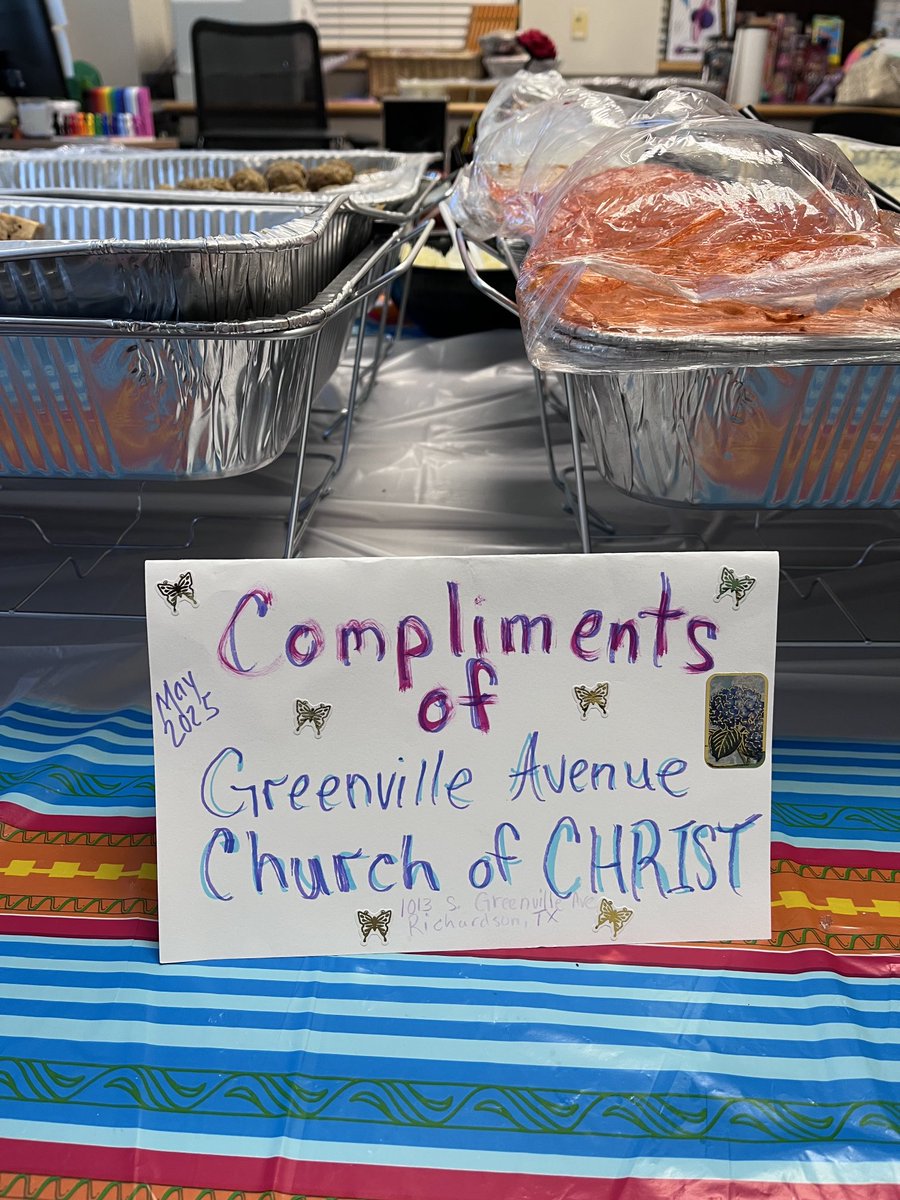 Compliments
of
May
2025
Greenville Avenue
Church of CHRIST
1013 S. Greenville Ave
Richardson, TX